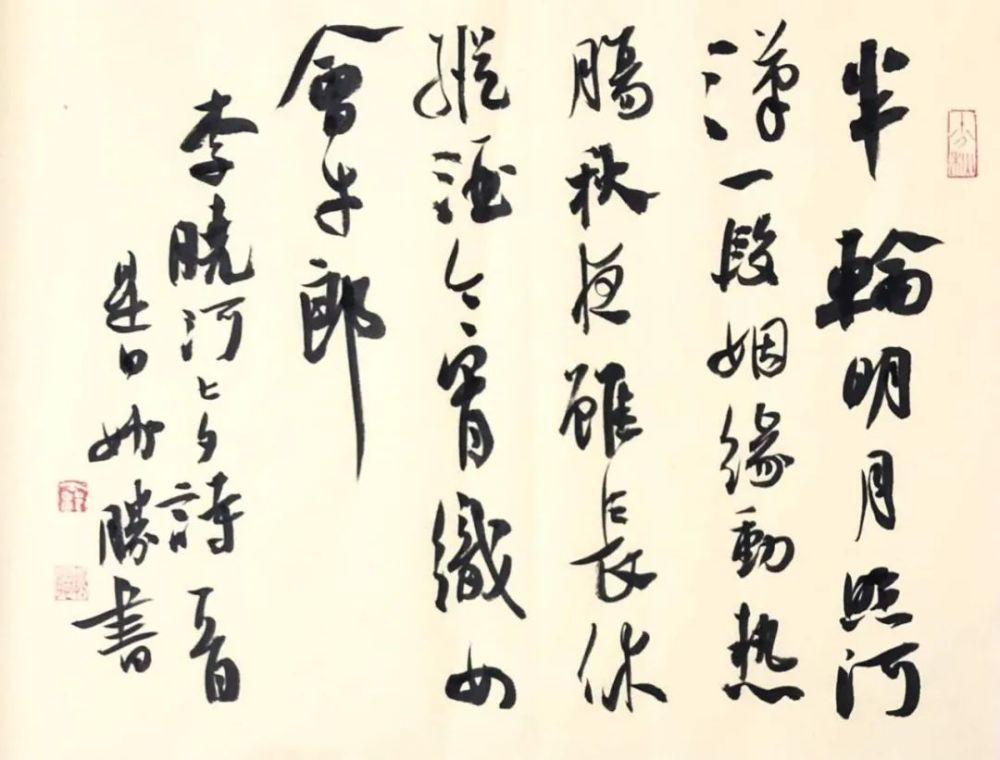 半輪明月照河
漢一段姻緣動熱
腸秋夜雖長休
縱酒今宵織女
會牛郎
李曉河七夕詩一首
是日妙勝書